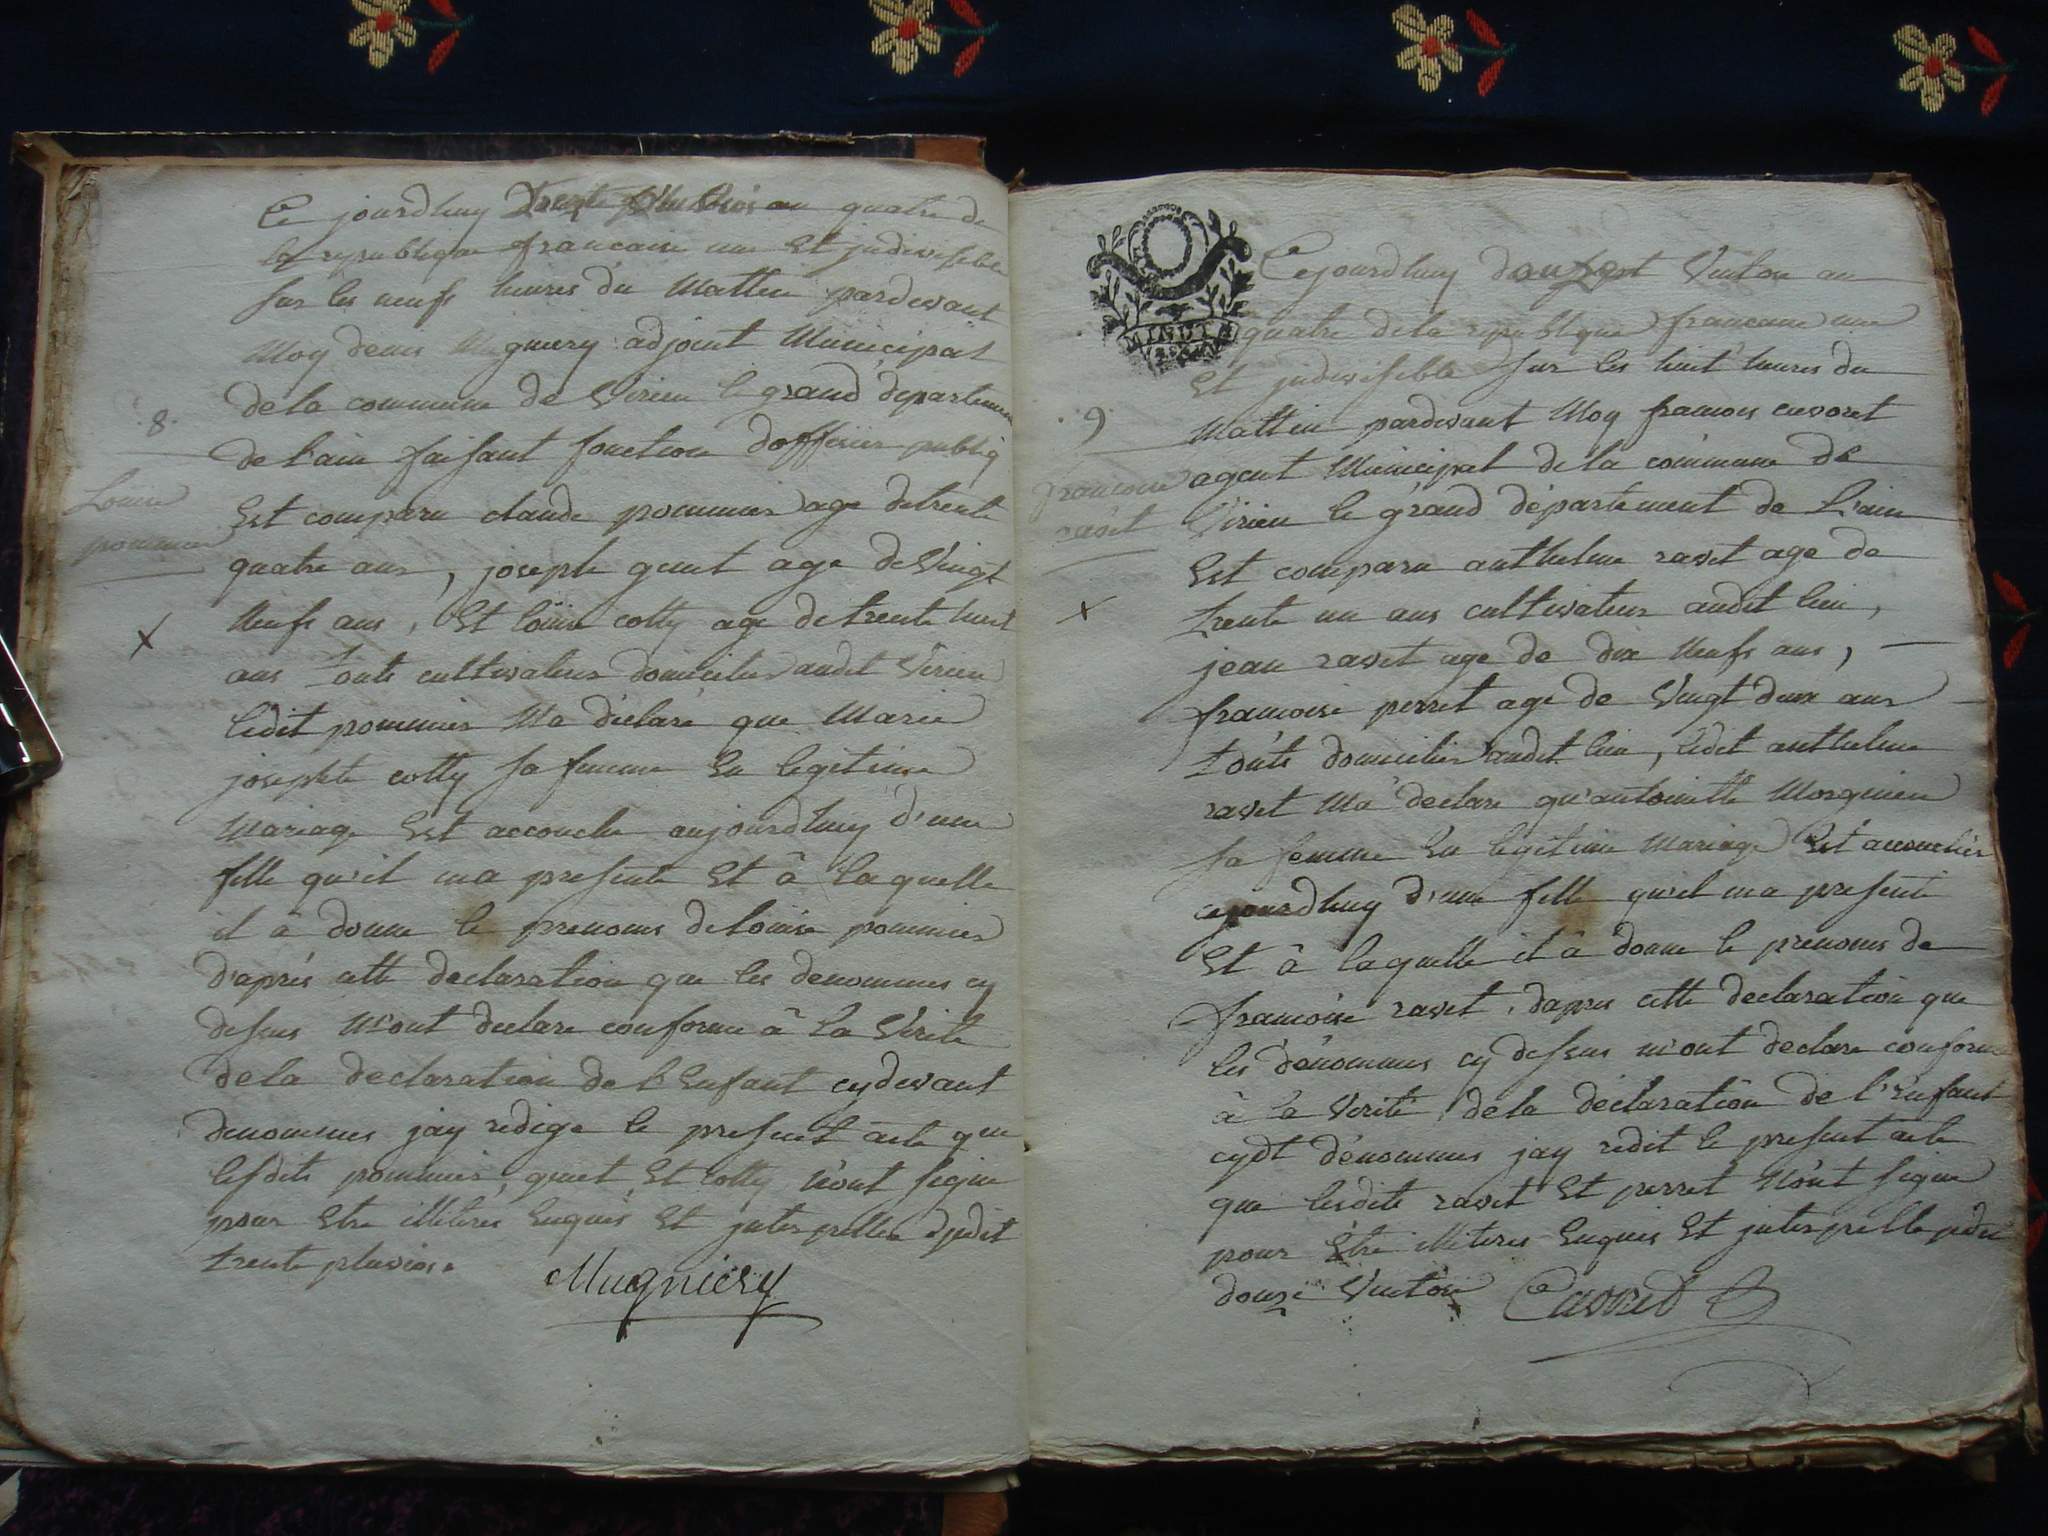 Ce jourdhuy Trente Pluviôs an quatre de
la republique francaise une Et jndivisible
sur les neufs heures du Mattin pardevant
Moy denis Mugniery adjoint Municipal
de la commune de Virieu le grand departement
de l'ain faisant fonction dofficier public
Est comparu claude pommier age de trente
quatre ans, joseph guet age de Vingt
Neufs ans, Et loüise cotty age de trente huit
ans touts cultivateurs domicilies audit Virieu
ledit pommier Ma déclaré que Marie
josephte cotty sa femme En legitime
Mariage Est accouche aujourdhuy d'une
fille qu'il ma presente Et â laquelle
il â donne le prenoms de loüise pommier
d'aprés cette declaration que les denommes cy
dessus M'ont declare conforme â la Verite
de la declaration de l'Enfant cydevant
denommes jay redige le present acte que
lesdits pommier, guet Et cotty n'ont signe
pour Etre illiteres Enquis Et jnterpelles
trente pluvios.
Mugniery
8.
Louise
pommier
x
MINUTE
Cejourdhuy douze Ventose an
quatre de la republique francaise une
Et jndivisible sur les huit heures du
Mattin pardevant Moy francois cuvoret
agent Municipal de la commune de
Virieu le grand département de L'ain
Est comparu anthelme ravet age de
trente un ans cultivateur audit lieu,
jean ravet age de dix Neufs ans,
francoise perret age de Vingt deux ans
touts domicilies audit lieu, ledit anthelme
ravet Ma declare qu'antoinette
sa femme En legitime Mariage Est accouchée
cejourdhuy d'une fille qu'il ma presente
Et â laquelle il â donne le prenoms de
francoise ravet, dapres cette declaration que
les dénommes cy dessus m'ont declare conforme
â la Verité de la déclaration de l'Enfant
cydt dénommes jay redit le present acte
que lesdits ravet Et perret N'ont signe
pour Étre illiteres Enquis Et jnterpelle
douze Ventose
Cuvoret
9
francoise
ravet
x